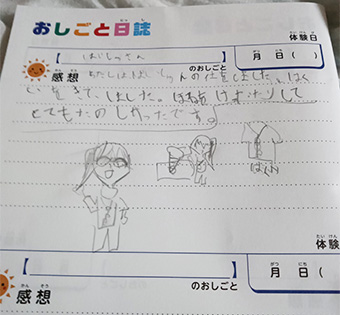 おしごと日誌
体験日
【はいしゃさん】
のおしごと
月 日 (
感想
わたしははいしゃさんの仕事しました。はく
いをきて、しました。はをけずったりして
とてもたのしかったです。
はくい
体験
【 】
のおしごと
月 日 (
感想